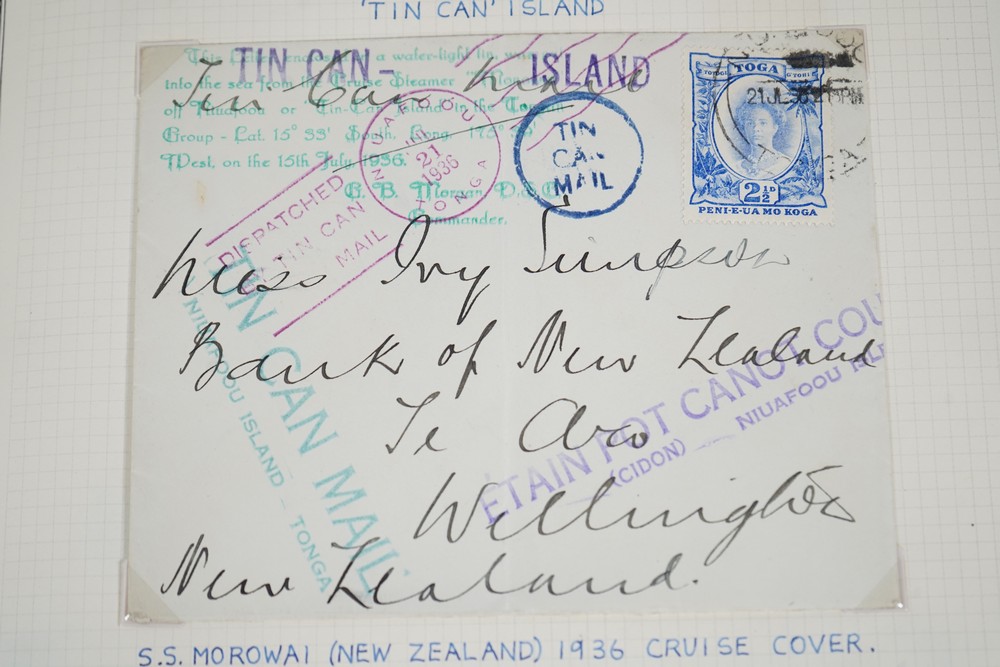 'TIN CAN' ISLAND
TIN CAN- ISLAND
This Letter a water-tight tin, was
into the sea from the Cruise Steamer
off Niuafoou or "Tin-Can Island" in the Tongan
Group - Lat. 15° 33' South, Long. 175°
West, on the 15th July, 1936.
B. B. Morgan,
Commander.
Tin Can Mail
NIUAFOOU
21
1936
TONGA
TIN
CAN
MAIL
TOGA
2½D
PENI-E-UA MO KOGA
21JL36
DISPATCHED
TIN CAN
MAIL
Miss Ivy Simpson
Bank of New Zealand
Te Aro
Wellington
New Zealand.
TIN CAN MAIL
NIUAFOOU ISLAND - TONGA
ETAIN POT CANOT COU
(CIDON) NIUAFOOU
S.S. MOROWAI (NEW ZEALAND) 1936 CRUISE COVER.